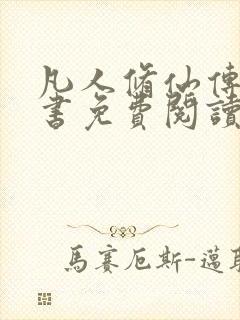 凡人脩仙傳
書免費閱讀
馬賽厄斯-邁耶